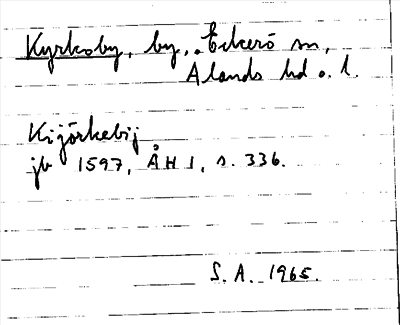 Kyrkoby, by, Eckerö sn,
Ålands hd o. l.
Kijörkebij
jb 1597, ÅH 1, s. 336.
S. A. 1965.